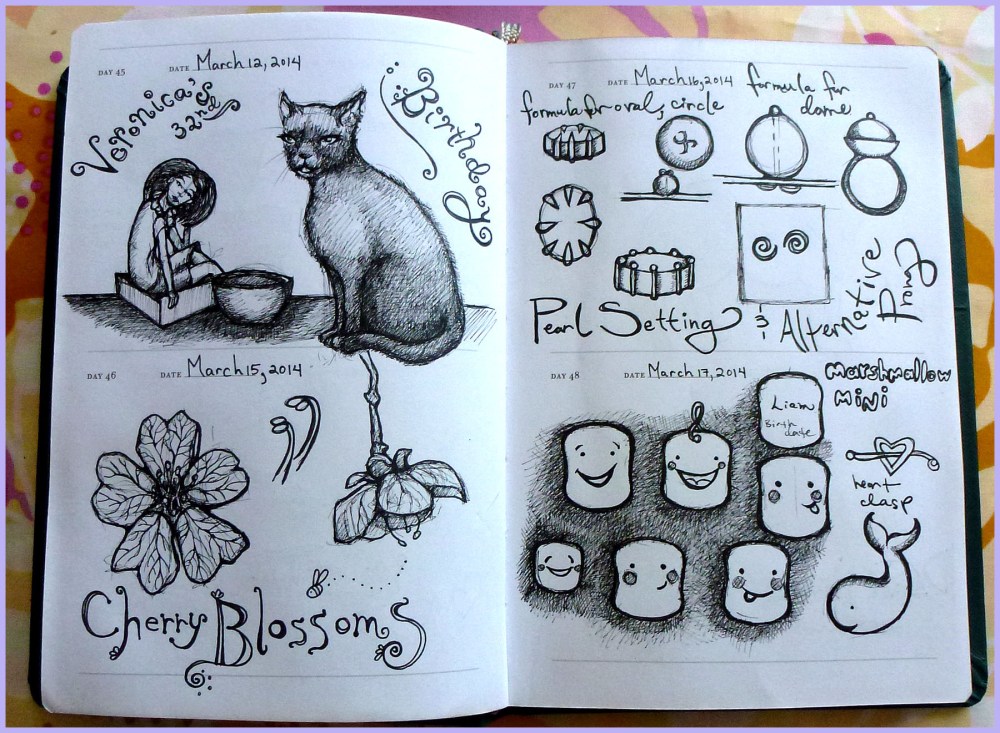 DAY 45 DATE March 12, 2014
Veronica's
32nd
Birthday
DAY 46 DATE March 15, 2014
Cherry Blossoms
DAY 47 DATE March 16, 2014
formula for oval, circle
formula for
dome
Pearl Setting
& Alternative
Prong
DAY 48 DATE March 17, 2014
marshmallow
mini
Liam
Birth
date
heart
clasp